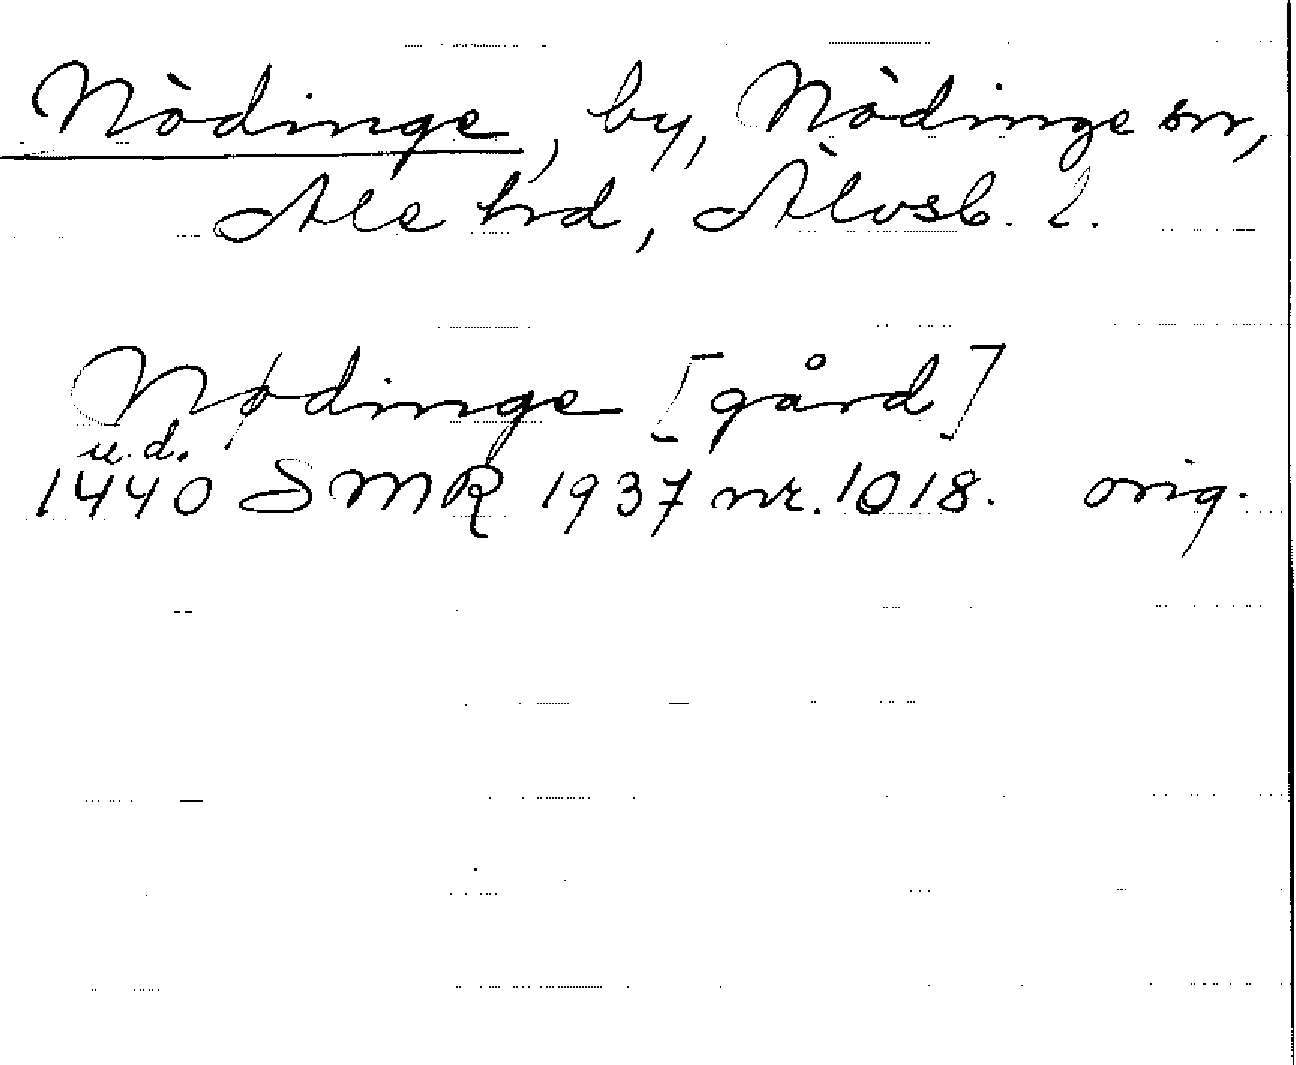 Nödinge, by, Nödinge sn,
Ale hrd, Älvsb. l.
Nødinge [gård]
u.d.
1440 SMR 1937 nr. 1018. orig.